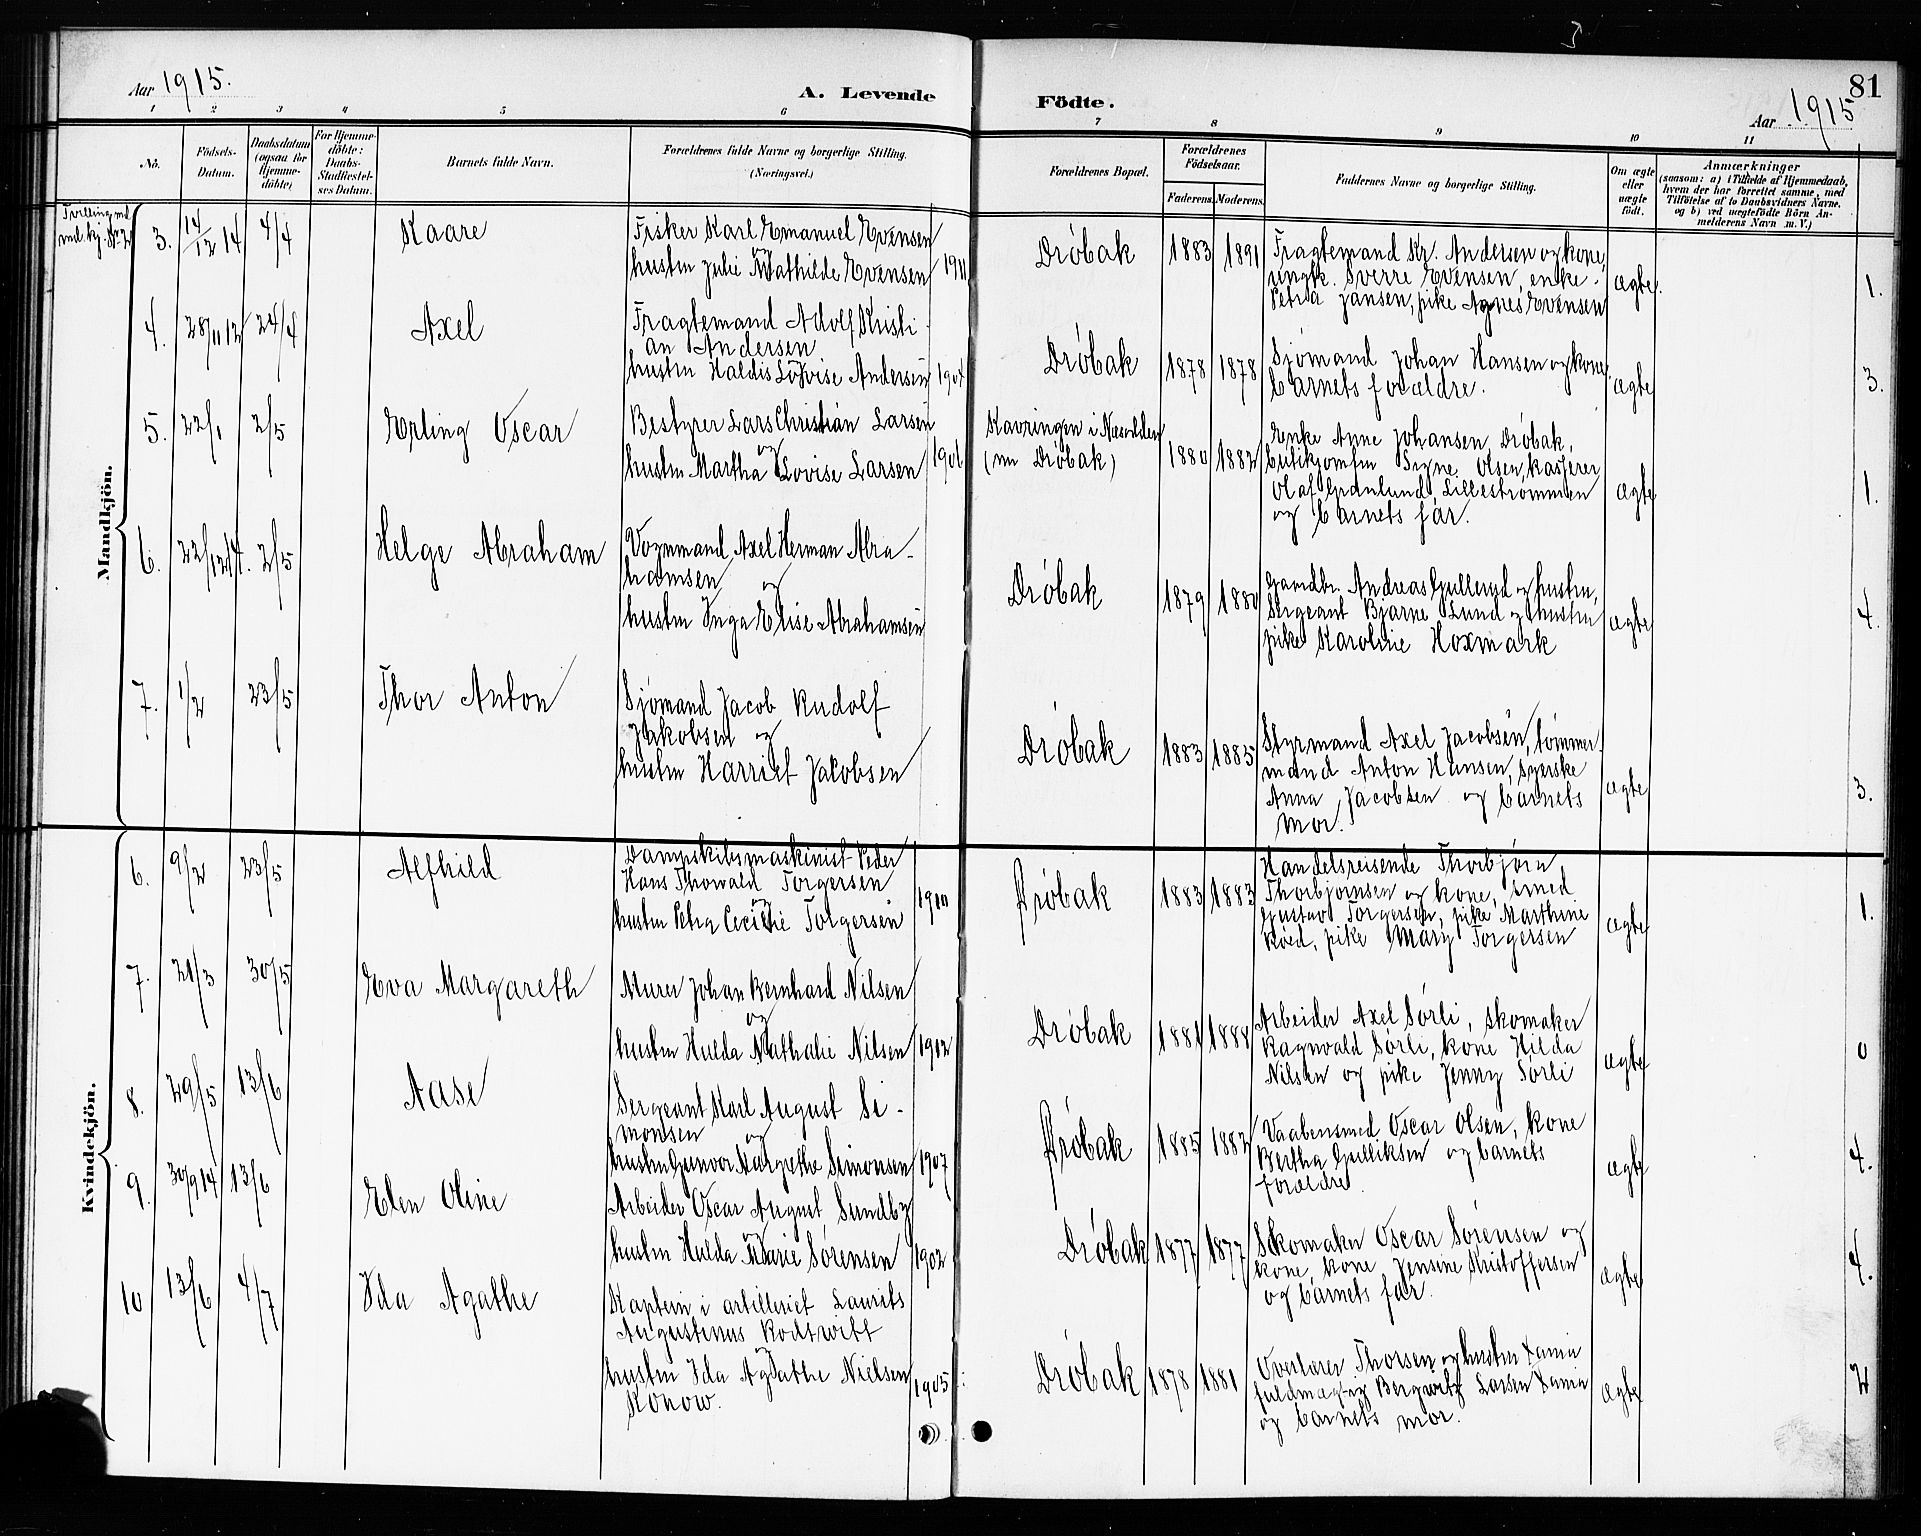 81
Aar 1915.
A. Levende
Födte.
Aar 1915
1 2 3 4 5 6 7 8 9 10 11
No.
Födsels-
Datum.
Daabsdatum
(ogsaa for
Hjemme-
döbte)
For Hjemme-
döbte:
Daabs-
Stadfæstel-
ses Datum.
Barnets fulde Navn.
Forældrenes fulde Navne og borgerlige Stilling.
(Næringsvei.)
Forældrenes Bopæl.
Forældrenes
Födselsaar.
Faderens. Moderens.
Faddernes Navne og borgerlige Stilling.
Om ægte
eller
uægte
födt.
Anmærkninger
(saasom: a) i Tilfælde af Hjemmedaab,
hvem der har forrettet samme, med
Tilföielse af to Daabsvidners Navne.
og b) ved uægtefödte Börn An-
melderens Navn m. V.)
Mandkjön.
Tvilling md.
3. 14/12 14 4/4 Kaare
Fisker Karl Emanuel Evensen
og
hustru Julie Mathilde Evensen 1911
Dröbak 1883 1891
Fragtemand Kr. Andersen og kone,
ungk. Sverre Evensen, enke
Petra Jansen, pike Agnes Evensen
ægte. 1.
4. 28/11 12 24/4 Axel
Fragtemand Adolf Kristi-
an Andersen
hustru Haldis Lovise Andersen 1904
Dröbak 1878 1878
Sjömand Johan Hansen og kone,
barnets forældre.
ægte 3.
5. 22/1 2/5 Erling Oscar
Bestyrer Lars Christian Larsen
og
hustru Martha Lovise Larsen 1906
Kavringen i Næsodden
(nu Dröbak) 1880 1882
Enke Anne Johansen, Dröbak,
Signe Olsen, kasserer
Olaf Grönlund, Lilleströmmen
og barnets far.
ægte 1.
6. 22/12 14. 2/5 Helge Abraham
Vognmand Axel Herman Abra-
hamsen og
hustru Inga Elise Abrahamsen
Dröbak 1879 1880
Gaardbr. Andreas Gullerud og hustru,
Sergeant Bjarne Lund og hustru
pike Karoline Hoxmark
ægte 4.
7. 1/2 23/5 Thor Anton
Sjömand Jacob Rudolf
Jakobsen og
hustru Harriet Jakobsen
Dröbak 1883 1885
Styrmand Axel Jacobsen, tömmer-
mand Anton Hansen, syerske
Anna Jacobsen og barnets
mor.
ægte 3.
Kvindekjön.
6. 9/2 23/5 Alfhild
Dampskibsmaskinist Peder
Hans Thorvald Torgersen
og
hustru Petra Cecilie Torgersen 1910
Dröbak 1883 1883
Handelsreisende Thorbjörn
Thorbjörnsen og kone, smed
Gustav Torgersen, pike Marthine
Röed, pike Mary Torgersen
ægte 1.
7. 21/3 30/5 Eva Margareth
Murer Johan Bernhard Nilsen
og
hustru Hulda Nathalie Nilsen 1912
Dröbak 1881 1888
Arbeider Axel Sörli, skomaker
Ragnvald Sörli, kone Hilda
Nilsen og pike Jenny Sörli
ægte 0
8. 29/5 13/6 Aase
Sergeant Karl August Si-
monsen og
hustru Gunvor Margrethe Simonsen 1907
Dröbak 1885 1882
Vaabensmed Oscar Olsen, kone
Bertha Gulliksen og barnets
forældre.
ægte 4.
9. 30/9 14 13/6 Elen Oline
Arbeider Oscar August Sundby
og
hustru Hulda Marie Sörensen 1902
Dröbak 1877 1877
Skomaker Oscar Sörensen og
kone, kone Jensine Kristoffersen
og barnets far.
ægte 4.
10 13/6 4/7 Ida Agathe
Kaptein i artilleriet Laurits
Augustinus Rodtwitt
og
hustru Ida Agathe Nielsen 1905
Konow.
Dröbak 1878 1881
Overlærer Thorsen og hustru
fuldmægtig Bergwitz Larsen
og barnets mor.
ægte 2